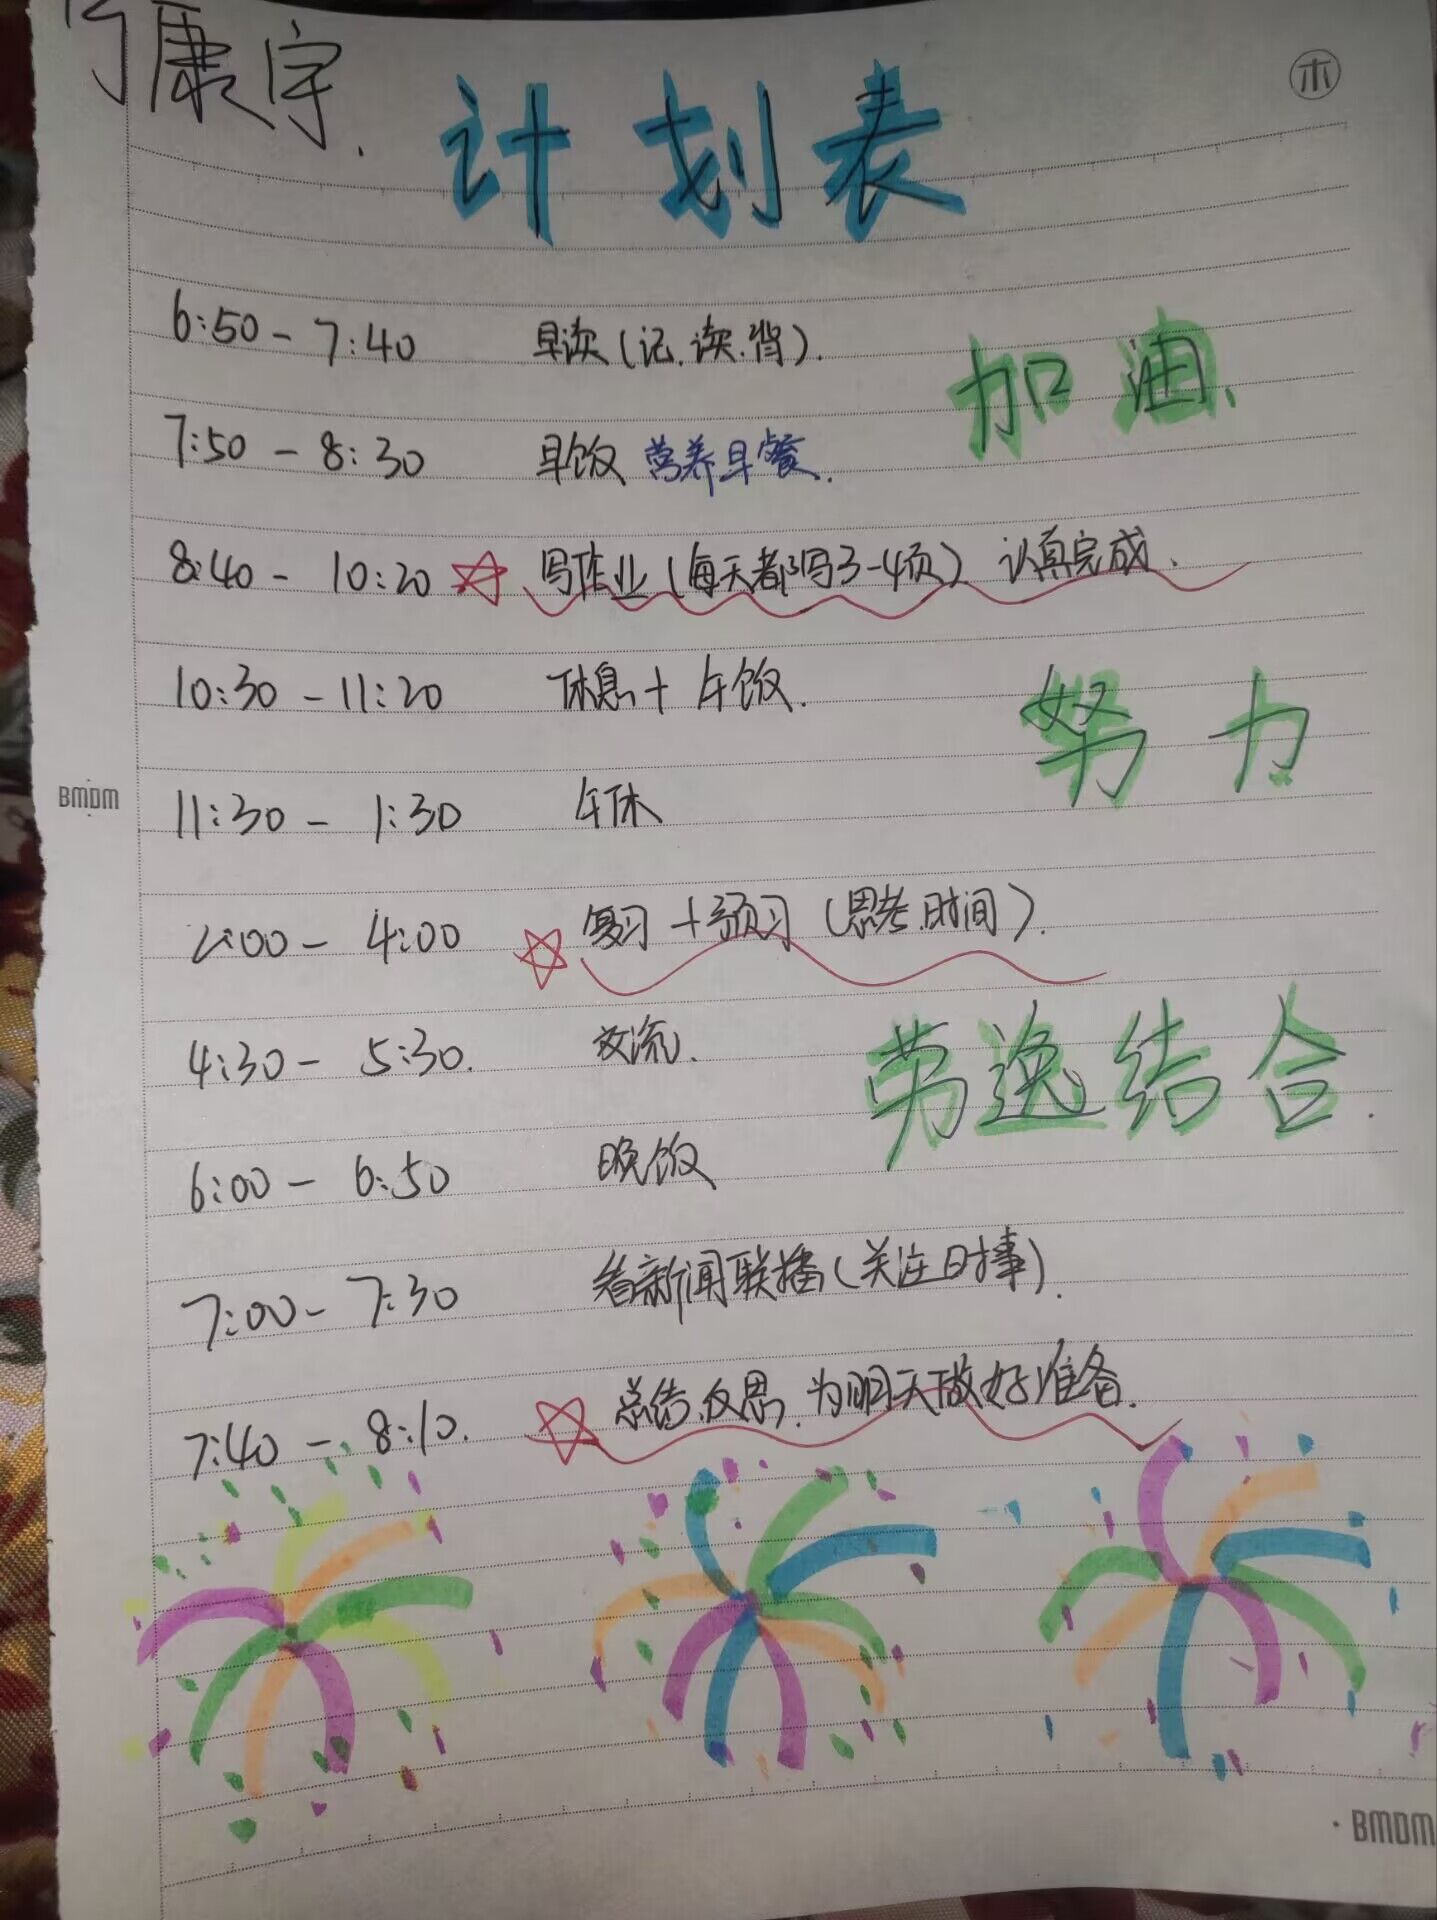 康宇.
木
计划表
6:50 - 7:40 早读(记.读.背).
加油.
7:50 - 8:30 早饭 营养早餐.
8:40 - 10:20 写作业(每天都写3-4页) 认真完成.
10:30 - 11:20 休息+午饭.
努力
BMDM
11:30 - 1:30 午休
2:00 - 4:00 复习+预习(思考.时间).
4:30 - 5:30. 交流.
劳逸结合.
6:00 - 6:50 晚饭
7:00 - 7:30 看新闻联播(关注时事).
7:40 - 8:10. 总结.反思.为明天做好准备.
BMDM